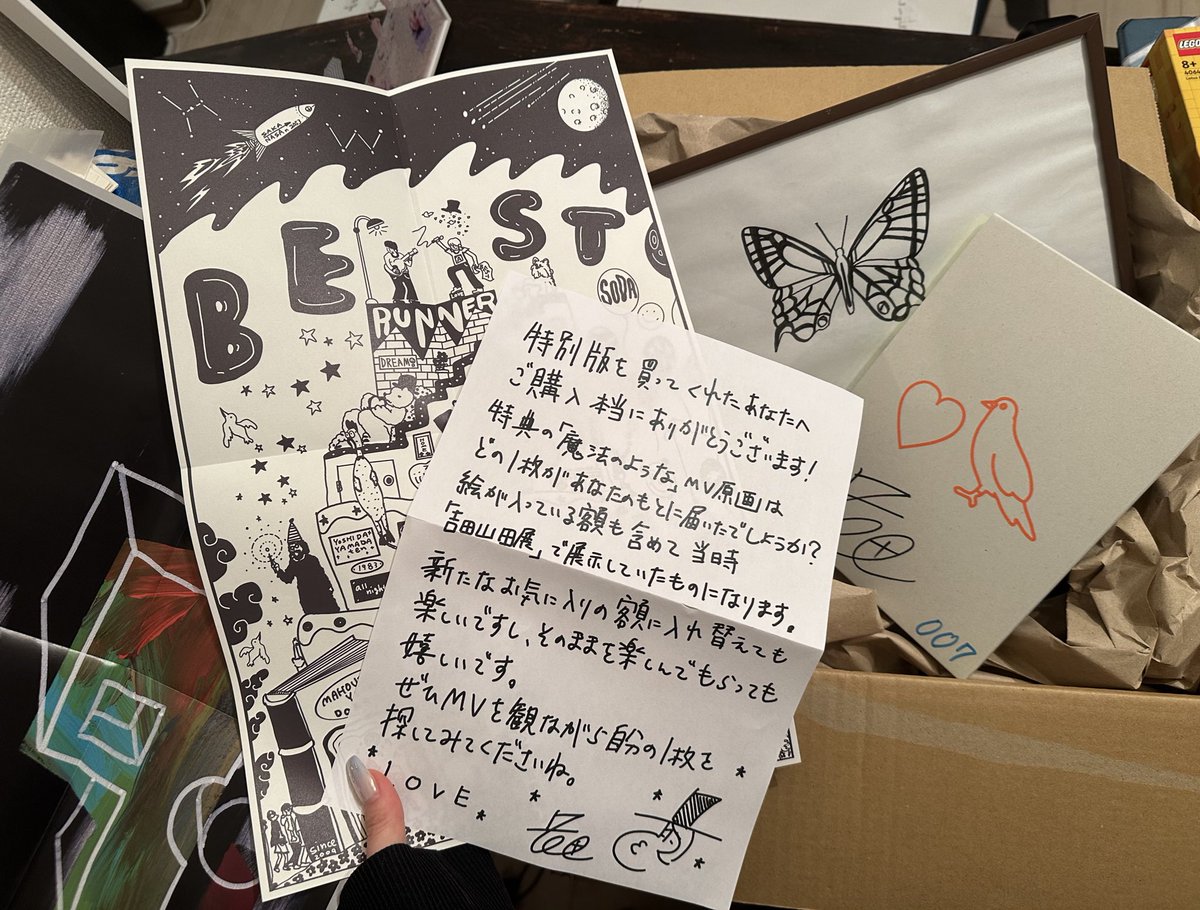 SAKA
NADA
BEST
RUNNER
SODA
DREAM
YOSHIDA
YAMADA
ten
1983
all
night
MAHOU
Y
DO
Since
2009
特別版を買ってくれたあなたへ
ご購入本当にありがとうございます!
特典の「魔法のような」MV原画は
どの1枚があなたのもとに届いたでしょうか?
絵が入っている額も含めて当時
「吉田山田展」で展示していたものになります。
新たなお気に入りの額に入れ替えても
楽しいですし、そのままを楽しんでもらっても
嬉しいです。
ぜひMVを観ながら自分の1枚を
探してみてくださいね。
LOVE
007
LEGO
8+